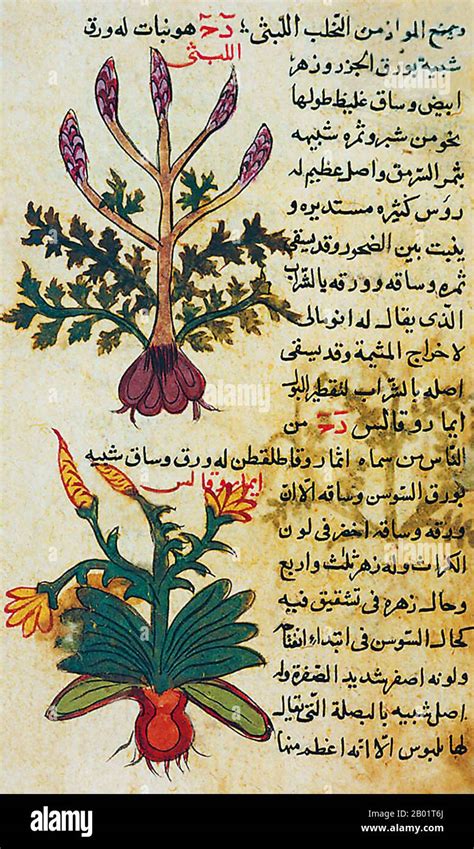 ويمنع الموازين من التخلب اللبثى؛ دح هو نبات له ورق
اللبثى
شبيه بورق الجزر وزهر
ابيض وساق غليظ طولها
نحو من شبر وثمره شبيهه
بثمر السرمق واصل عظيم له
روس كثيره مستديره و
ينبت بين الصخور وقد يسقى
ثمره وساقه وورقه بالشراب
الذى يقال له انومالى
لاخراج المشيمة وقد يسقى
اصله بالشراب لتقطير البول
ايمارو قالس دح من
الناس من سماه ايمارو قاطلقطن له ورق وساق شبيه
ايمارو قالس
بورق السوسن وساقه الا ان
ورقه وساقه اخضر فى لون
الكراث وله زهر ثلث واربع
وحال زهره فى تشقيق فيه
كحال السوسن فى ابتداء انفتا
ولونه اصفر شديد الصفرة وله
اصل شبيه بالبصلة التى يقال
لها بلبوس الا انه اعظم منها
alamy
alamy
alamy
alamy
Image ID: 2B01T6J
www.alamy.com